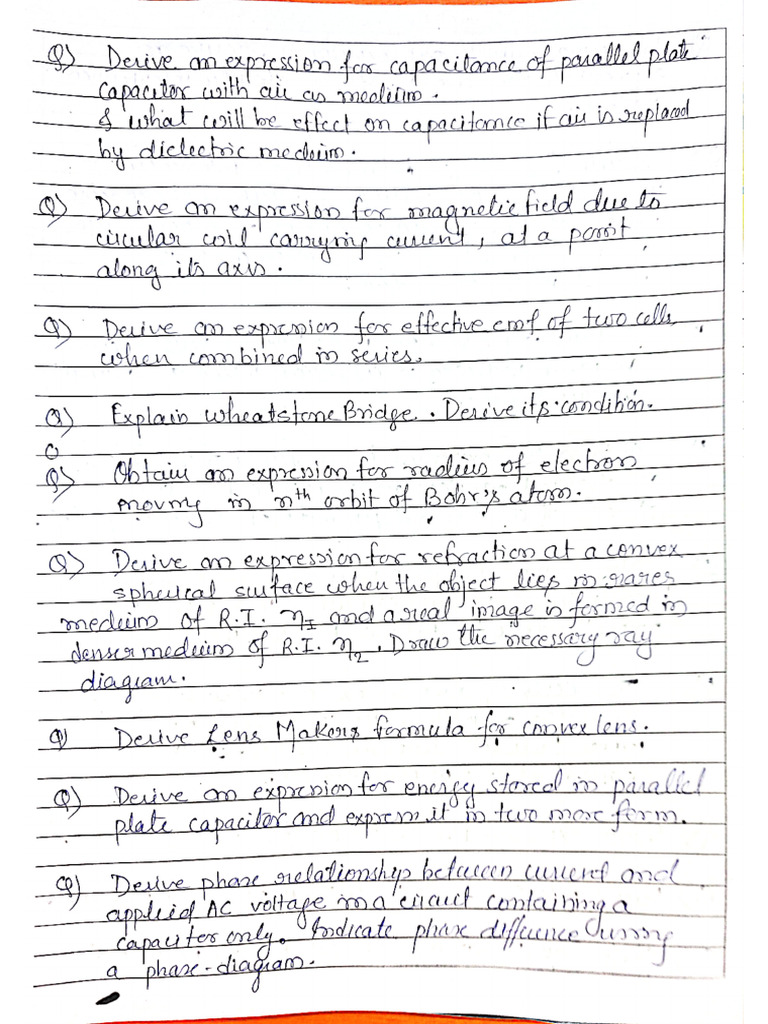 Q) Derive an expression for capacitance of parallel plate
capacitor with air as medium.
& what will be effect on capacitance if air is replaced
by dielectric medium.
Q) Derive an expression for magnetic field due to
circular coil carrying current, at a point
along its axis.
Q) Derive an expression for effective emf of two cells
when combined in series.
Q) Explain Wheatstone Bridge. Derive its condition.
Q) Obtain an expression for radius of electron
moving in nth orbit of Bohr's atom.
Q) Derive an expression for refraction at a convex
spherical surface when the object lies in rarer
medium of R.I. η1 and a real image is formed in
denser medium of R.I. η2. Draw the necessary ray
diagram.
Q) Derive Lens Makers formula for convex lens.
Q) Derive an expression for energy stored in parallel
plate capacitor and express it in two more form.
Q) Derive phase relationship between current and
applied AC voltage in a circuit containing a
capacitor only. Indicate phase diffience using
a phase-diagram.